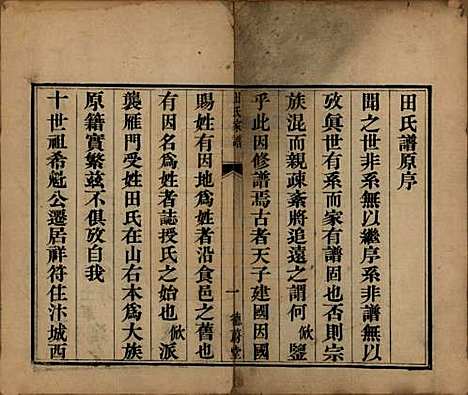 田氏譜原序
聞之世非系無以繼序系非譜無以
攷眞世有系而家有譜固也否則宗
族混而親疎紊將追遠之謂何歟鑒
乎此因修譜焉古者天子建國因國
賜姓有因地爲姓者沿食邑之舊也
有因名爲姓者誌授氏之始也歟派
襲雁門受姓田氏在山右木爲大族
原籍實繁茲不俱攷自我
十世祖希魁公遷居祥符住汴城西
田氏家譜
一